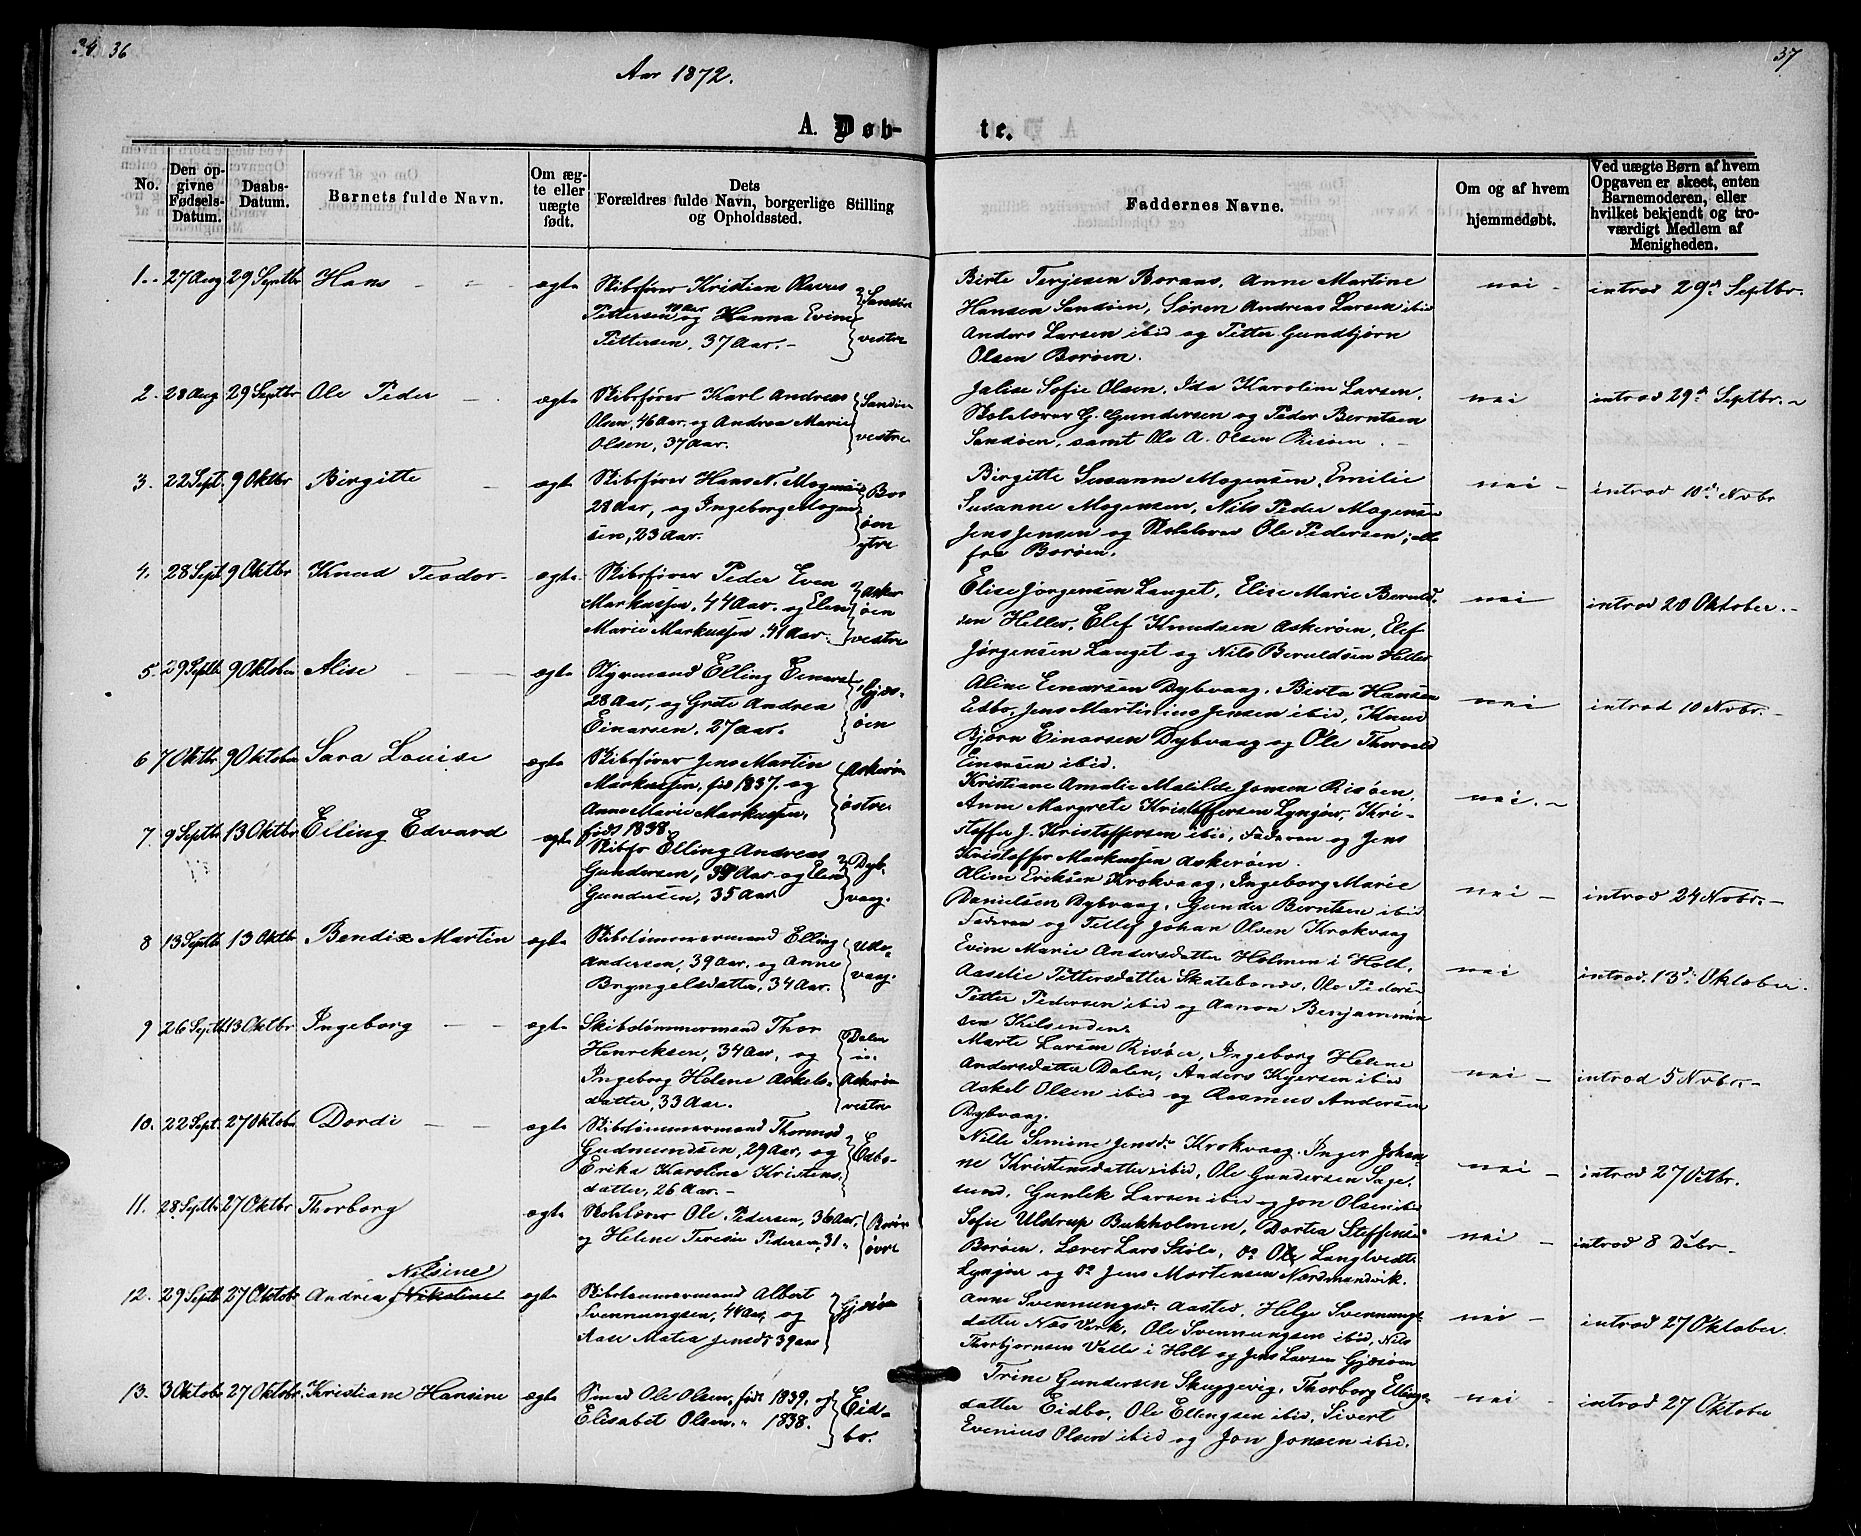 36
Aar 1872.
37
A. Døb-
te.
No.
Den op-
givne
Fødsels-
Datum.
Daabs-
Datum.
Barnets fulde Navn.
Om æg-
te eller
uægte
født.
Dets
Forældres fulde Navn, borgerlige Stilling
og Opholdssted.
Faddernes Navne.
Om og af hvem
hjemmedøbt.
Ved uægte Børn af hvem
Opgaven er skeet, enten
Barnemoderen, eller
hvilket bekjendt og tro-
værdigt Medlem af
Menigheden.
1. 27 Aug 29 Septbr Hans ægte
Skibsfører Kristian Olaves
Pettersen og Hanna Evine
Pettersen, 37 Aar.
Sandøen
vestre
Birte Terjesen Borøens, Anne Martine
Hansen Sandøen, Søren Andreas Larsen ibid
Anders Larsen ibid og Petter Gundbjørn
Olsen Borøen.
nei
introd 29d Septbr.
2. 28 Aug 29 Septbr Ole Peder ægte
Skibsfører Karl Andreas
Olsen, 46 Aar, og Andrea Marie
Olsen, 37 Aar.
Sandøen
vestre
Jalise Sofie Olsen, Ida Karoline Larsen,
Skolelærer G. Gundersen og Peder Berntsen
Sandøen, samt Ole A. Olsen Risøen.
nei
introd 29d Septbr.
3. 22 Sept. 9 Oktbr Birgitte ægte
Skibsfører Hans N. Mogensen
28 Aar, og Ingeborg Mogen
sen, 23 Aar.
Bor
øen
ytre
Birgitte Susanne Mogensen, Emilie
Susanne Mogensen, Nils Peder Mogensen
Jens Jensen og Skolelærer Ole Pedersen, alle
fra Borøen.
nei
introd 10d Nvbr
4. 28 Sept. 9 Oktbr Knud Teodor ægte
Skibsfører Peder Even
Markussen, 44 Aar. og Elen
Marie Markussen, 41 Aar.
Asker
øen
vestre
Elise Jørgensen Langet, Elise Marie Beruld-
sen Heller, Elef Knudsen Askerøen, Elef
Jørgensen Langet og Nils Beruldsen Heller
nei
introd 20 Oktober.
5. 29 Septbr 9 Oktober Alise ægte
Styrmand Elling Einarsen
28 Aar, og Grete Andrea
Einarsen, 27 Aar.
Gjæs-
øen
Aline Einarsen Dybvaag, Birta Hansen
Edbo, Jens Martinius Jensen ibid, Knud
Bjørn Einarsen Dybvaag og Ole Thorvald
Einarsen ibid.
nei
introd 10 Nvbr.
6 7 Oktbr 9 Oktober Sara Louise ægte
Skibsfører Jens Martin
Markussen, fød 1837. og
Anne Marie Markussen,
født 1838.
Askerøen
østre
Kristiane Amalie Matilde Jonsen Risøen,
Anne Margrete Kristoffersen Lyngør, Kri-
stoffer J. Kristoffersen ibid, Faderen og Jens
Kristoffer Markussen Askerøen.
nei.
7 9 Septbr 13 Oktbr Elling Edvard ægte
Skibsfr Elling Andreas
Gundersen, 39 Aar og Elen
Gundersen, 35 Aar.
Dyb-
vaag.
Aline Eriksen Krokvaag, Ingeborg Marie
Danielsen Dybvaag, Gunder Berntsen ibid
Faderen og Tellef Johan Olsen Krokvaag
nei
introd 24 Nvbr.
8 13 Septbr 13 Oktbr Bendix Martin ægte
Skibstømmermand Elling
Andersen, 39 Aar, og Anne
Bryngelsdatter, 34 Aar.
Uds-
vaag.
Evine Marie Andersdatter Holmen i Holt,
Aaselie Pettersdatter Skatebonds, Ole Peders-
Petter Pedersen ibid og Aanon Benjamin
sen Kilsenden.
nei
introd. 13d Oktober.
9 26 Septbr 13 Oktbr Ingeborg ægte
Skibstømmermand Thor
Henriksen, 34 Aar, og
Ingeborg Helene Askels-
datter, 33 Aar.
Dalen
Askerøen
vestre
Marte Larsen Risøer, Ingeborg Helene
Andersdatter Dalen, Anders Kjersen ibid
Askel Olsen ibid og Rasmus Andersen
Dybvaag.
nei
introd 5 Nvbr.
10. 22 Sept. 27 Oktober Dordi ægte
Skibstømmermand Thormod
Gudmundsen, 29 Aar, og
Erika Karolina Kristens-
datter, 26 Aar.
Edbo
Nille Simine Jensd. Krokvaag, Inger Johan-
ne Kristensdatter ibid, Ole Gundersen Sage-
sund, Gunlek Larsen ibid og Jon Olsen ibid
nei
introd 27 Octbr.
11. 28 Septbr 27 Oktbr Thorborg ægte
Skolelærer Ole Pedersen, 36 Aar,
og Helene Teresie Pedersen, 31 "
Borøen
øvre
Sofie Uldrup Bukholmen, Dortea Steffense-
Borøen, Lærer Lars Støle, do Ole Langtvedt
Lyngør og do Jens Mortensen Nordmandvik.
nei
introd 8 Debr
12. 29 Septb 27 Oktobr Andrea Nikoline Nilsine ægte
Skibstømmermand Albert
Svennungsen, 44 Aar, og
Aase Matea Jensd, 39 Aar
Gjæsøen
Anne Svennungsd. Aasted, Helge Svennungs-
datter Næs Verk, Ole Svennungsen ibid, Nils
Thorbjørnsen Valle i Holt og Jens Larsen Gjæsøen
nei
introd 27 Oktober.
13. 3 Oktober 27 Oktobr Kristiane Hansine ægte
Smed Ole Olsen, født 1839. og
Elisabet Olsen, " 1838.
Eid-
bo.
Trine Gundersen Skuggevig, Thorborg Ellings-
datter Eidbo, Ole Ellingsen ibid, Sivert
Evenius Olsen ibid og Jon Jonsen ibid.
nei
introd 27 Oktober